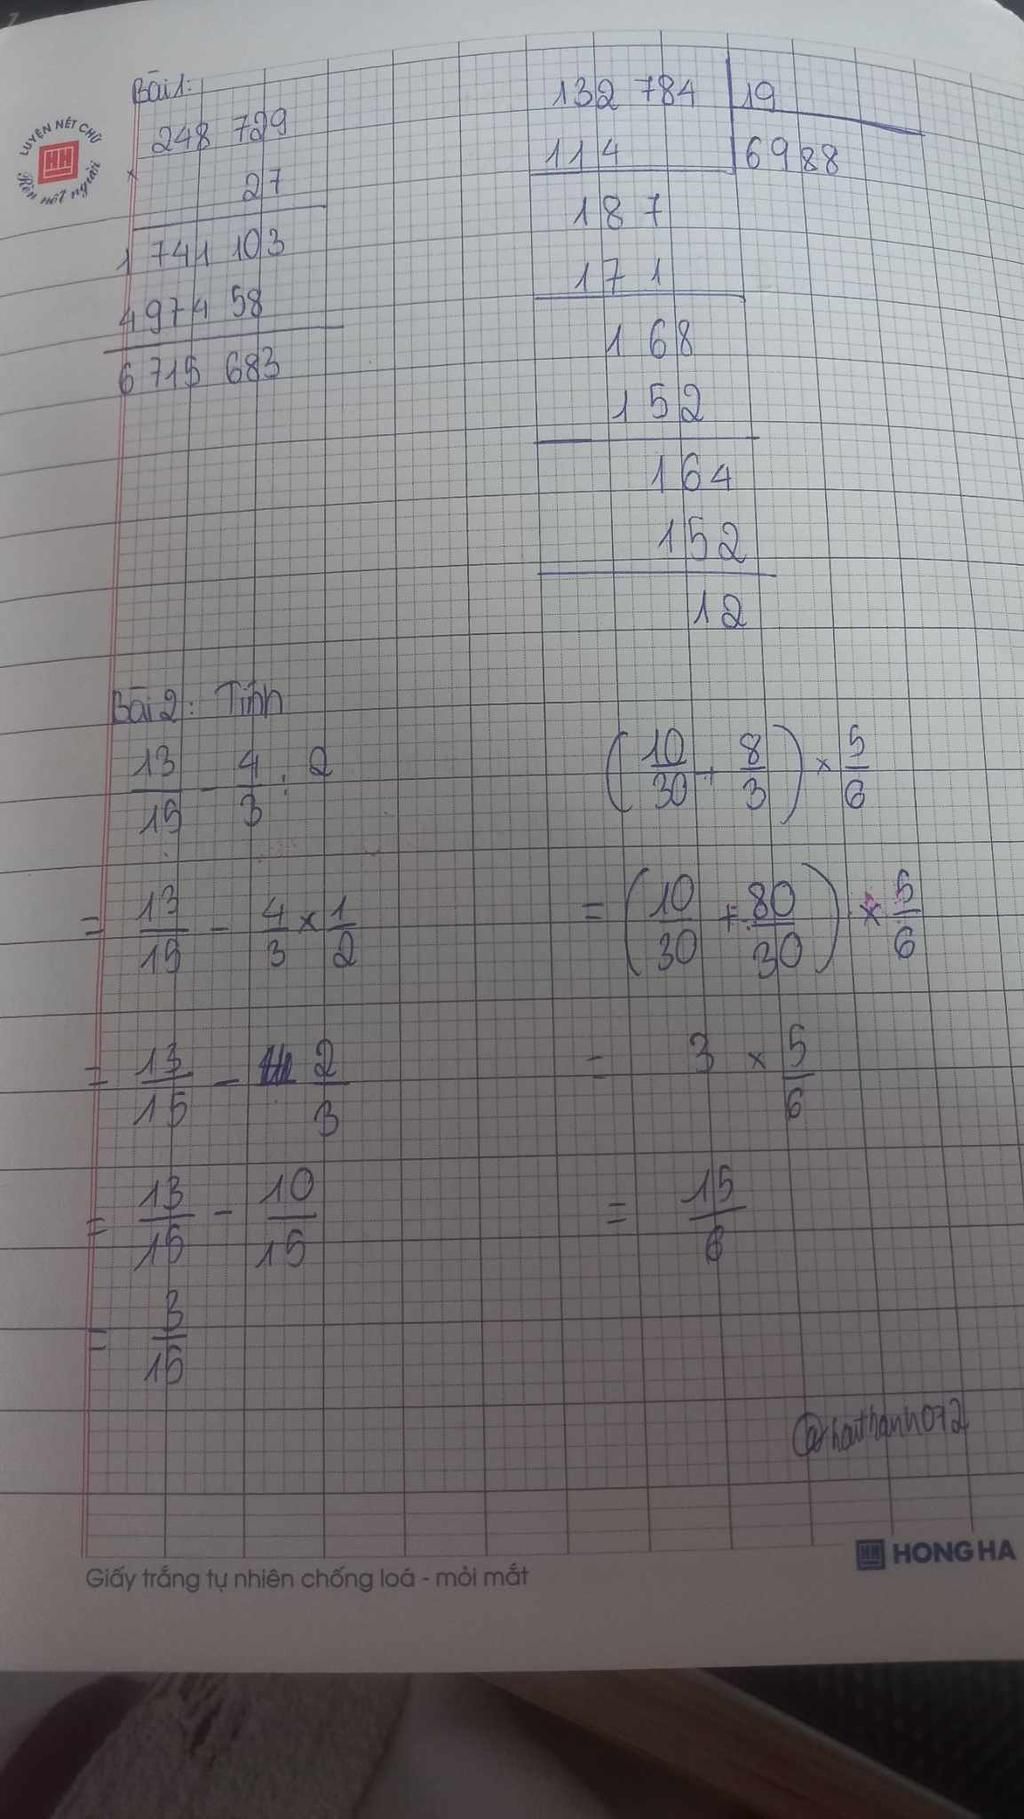 LUYỆN NÉT CHỮ
HH
Rèn nết người
Bài 1:
248 729
×
27
1 741 103
4 974 58
6 715 683
132 784 | 19
114 | 6988
187
171
168
152
164
152
12
Bài 2: Tính
13/15 - 4/3 : 2
= 13/15 - 4/3 × 1/2
= 13/15 - 2/3
= 13/15 - 10/15
= 3/15
(10/30 + 8/3) × 5/6
= (10/30 + 80/30) × 5/6
= 3 × 5/6
= 15/6
@haithanh072
HONG HA
Giấy trắng tự nhiên chống loá - mỏi mắt